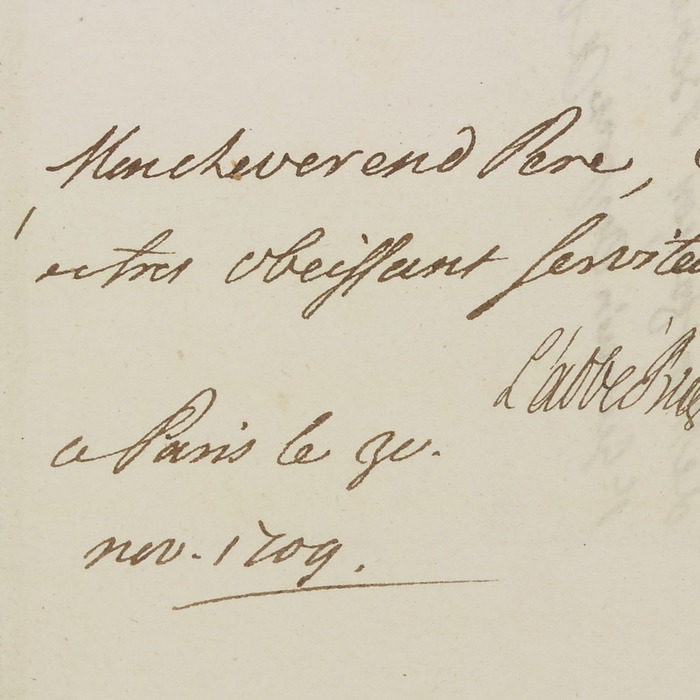 Mon Reverend Pere,
et tres obeissant Servite
L'abbé
a Paris le 30.
nov. 1709.